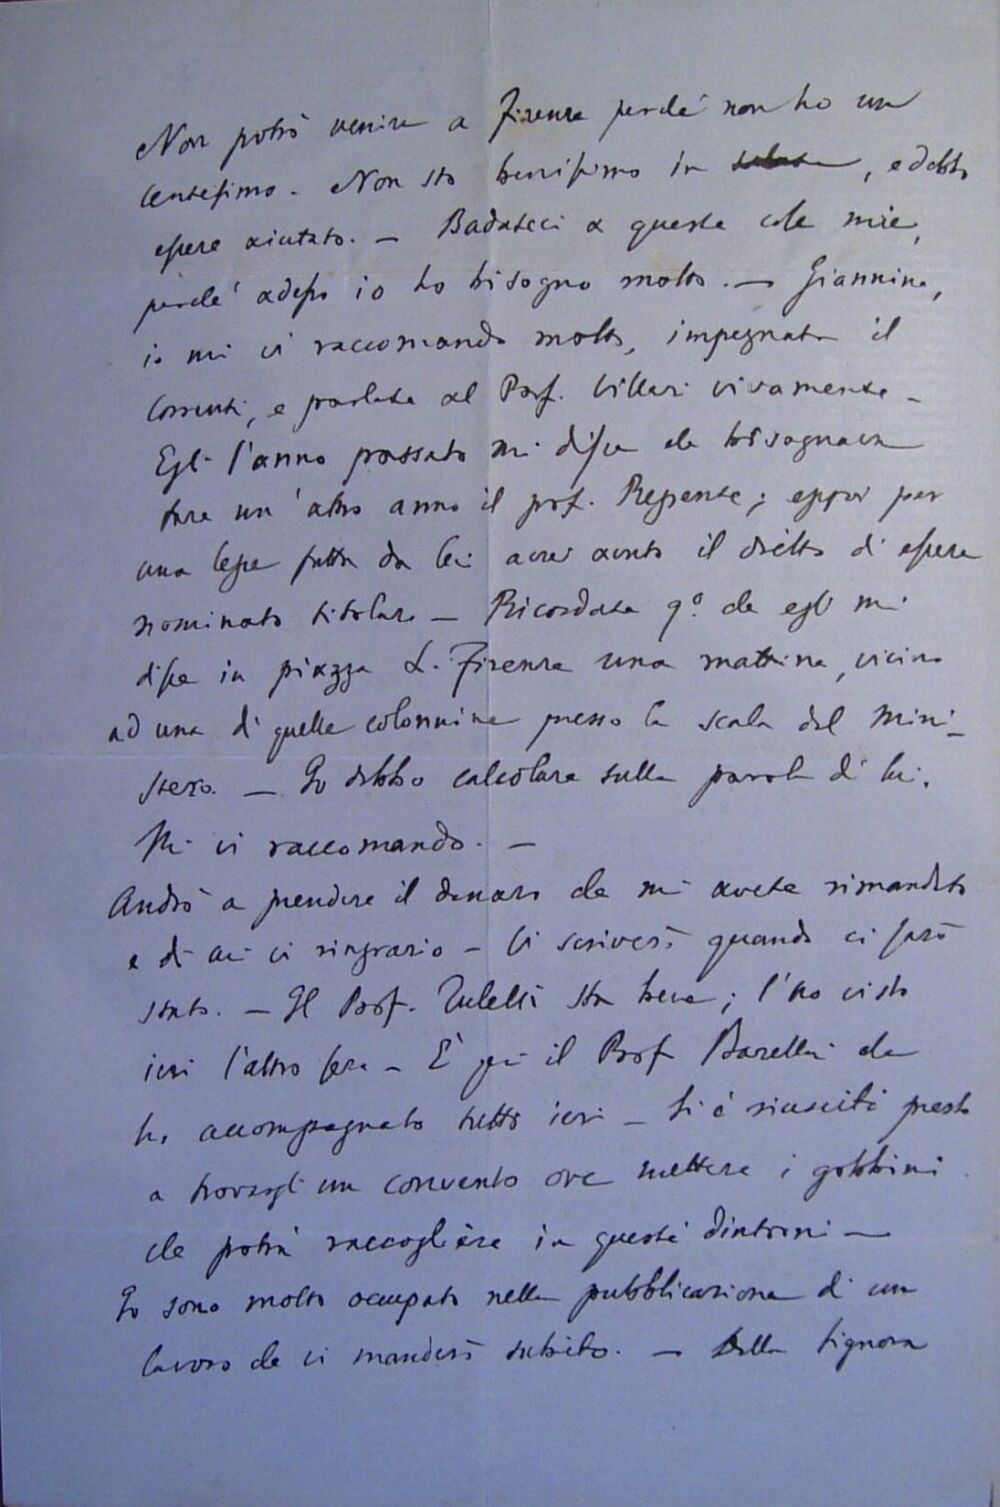 Non potrò venire a Firenze perché non ho un
centesimo. Non sto benissimo in salute, e debbo
essere aiutato. — Badateci a queste cose mie,
perché adesso io ho bisogno molto. — Giannina,
io mi vi raccomando molto, impegnate il
Correnti, e parlate al Prof. Villari vivamente —
Egli l'anno passato mi disse che bisognava
fare un'altro anno il prof. Reggente; eppoi per
una legge fatta da lui avrei avuto il diritto di essere
nominato titolare — Ricordate qº. che egli mi
disse in piazza S. Firenze una mattina, vicino
ad una di quelle colonnine presso la scala del Mini-
stero. — Io debbo calcolare sulla parola di lui.
Mi vi raccomando. —
Andrò a prendere il denaro che mi avete rimandato
e di cui vi ringrazio — Vi scriverò quando ci sarò
stato. — Il Prof. sta bene; l'ho visto
ieri l'altro sera — È qui il Prof Barellai che
ho accompagnato tutto ieri — Si è riusciti presto
a trovargli un convento ove mettere i gobbini
che potrà raccogliere in questi dintorni —
Io sono molto occupato nella pubblicazione di un
lavoro che vi manderò subito. — Della Signora